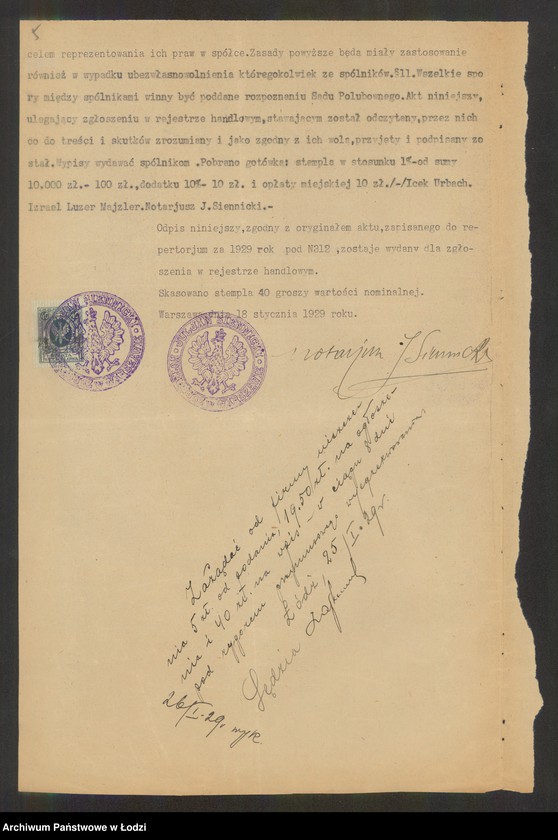 5
celem reprezentowania ich praw w spółce.Zasady powyższe będą miały zastosowanie
również w wypadku ubezwłasnowolnienia któregokolwiek ze spólników.§11.Wszelkie spo
ry między spólnikami winny być poddane rozpoznaniu Sądu Polubownego.Akt niniejszy,
ulegający zgłoszeniu w rejestrze handlowym,stawającym został odczytany,przez nich
co do treści i skutków zrozumiany i jako zgodny z ich wolą,przyjęty i podpisany zo
stał.Wypisy wydawać spólnikom .Pobrano gotówką: stempla w stosunku 1%-od sumy
10.000 zł.- 100 zł.,dodatku 10%- 10 zł. i opłaty miejskiej 10 zł./-/Icek Urbach.
Izrael Luzer Majzler.Notarjusz J.Siennicki.-
Odpis niniejszy,zgodny z oryginałem aktu,zapisanego do re-
pertorjum za 1929 rok pod N312 ,zostaje wydany dla zgło-
szenia w rejestrze handlowym.
Skasowano stempla 40 groszy wartości nominalnej.
Warszawa,dnia 18 stycznia 1929 roku.
notarjusz J Siennicki
Zażądać od firmy uiszcze-
nia 5 zł. od podania, 19.50 zł. na ogłosze-
nie i 40 zł. na wpis – w ciągu 8 dni
pod rygorem przymusowego wyegzekwowania
Łódź, 25/I-29r.
Sędzia
26/I-29r wyk.
Archiwum Państwowe w Łodzi